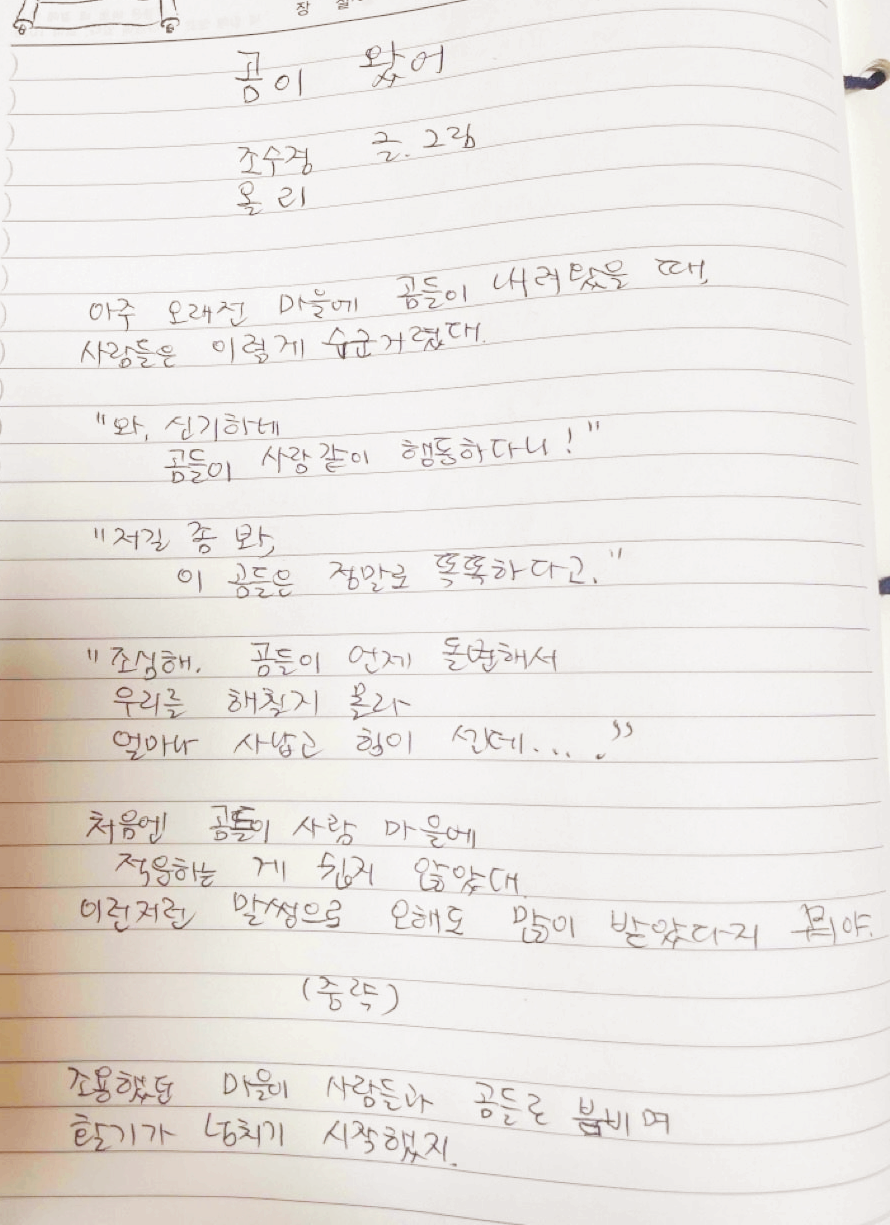 장
곰이 왔어
조수경 글.그림
올리
아주 오래전 마을에 곰들이 내려왔을 때,
사람들은 이렇게 수군거렸대.
"와, 신기하네
곰들이 사람같이 행동하다니!"
"저길 좀 봐,
이 곰들은 정말로 똑똑하다고."
"조심해. 곰들이 언제 돌변해서
우리를 해칠지 몰라
얼마나 사납고 힘이 센데...."
처음엔 곰들이 사람 마을에
적응하는 게 쉽지 않았대
이런저런 말썽으로 오해도 많이 받았다지 뭐야.
(중략)
조용했던 마을이 사람들과 곰들로 붐비며
활기가 넘치기 시작했지.